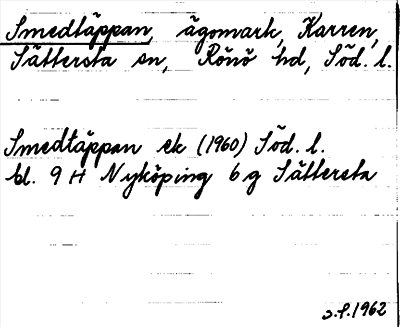 Smedtäppan, ägomark, Karren,
Sättersta sn, Rönö hd, Söd. l.
Smedtäppan ek (1960) Söd. l.
bl. 9 H Nyköping 6 g Sättersta
1962